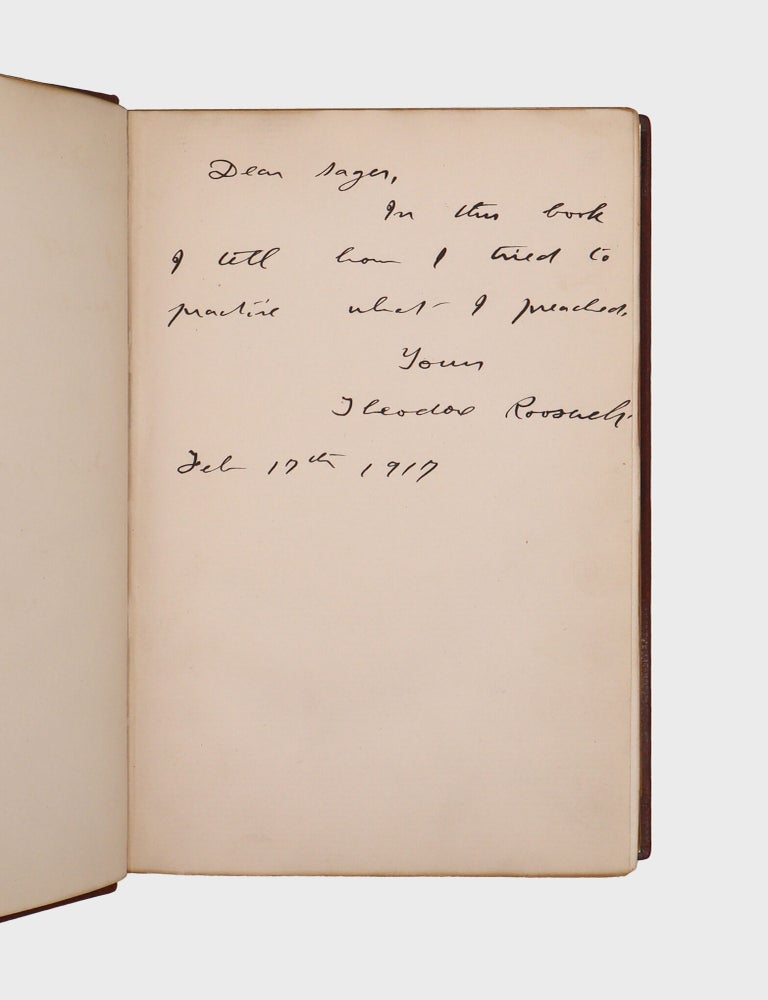 Dear Sager,
In this book
I tell how I tried to
practise what I preached.
Yours
Theodore Roosevelt
Feb 17th 1917